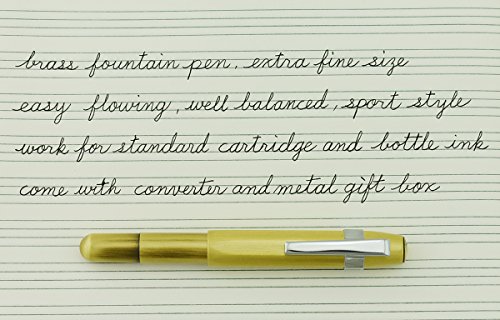 brass fountain pen, extra fine size
easy flowing, well balanced, sport style
work for standard cartridge and bottle ink
come with converter and metal gift box